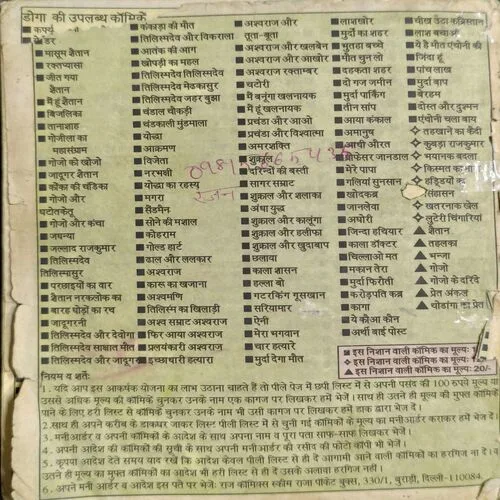 डोगा की उपलब्ध कॉमिकें
कर्फ्यू
मासूम शैतान
रक्तप्यासा
जीत गया
शैतान
मैं हूं शैतान
बिजलिका
तानाशाह
गोजीला का
महासंग्राम
गोजो की खोजो
जादूगर शैतान
कोंका की चंडिका
गोजो और
घटोतकेतु
गोजो और कंचा
जघन्या
जल्लाद राजकुमार
तिलिस्मदेव
तिलिस्मासुर
परछाइयों का वार
शैतान नरकलोक का
बारह घोड़ों का रथ
जादूगरनी
तिलिस्मदेव और देवोगा
तिलिस्मदेव साक्षात मौत
तिलिस्मदेव और जादूगर
कंकाड़ा की मौत
तिलिस्मदेव और विकराला
आतंक की आग
खोपड़ी का महल
तिलिस्मदेव तिलिस्मदेव
तिलिस्मदेव मेढकासुर
तिलिस्मदेव जहर बुझा
चंडाल चौकड़ी
चंडकाली मुंडमाला
योद्धा
आक्रमण
विजेता
नरभक्षी
योद्धा का रहस्य
मगरा
सैंडमैन
सोने की मशाल
कोहराम
गोल्ड हार्ट
ढाल और ललकार
अश्वराज
कारू का खजाना
अश्वमणि
तिलिस्म का खिलाड़ी
अश्व सम्राट अश्वराज
फिर आया अश्वराज
प्रलयंकारी अश्वराज
इच्छाधारी हत्यारा
अश्वराज और
तूता-बूता
अश्वराज और खलबेन
अश्वराज और आखोर
अश्वराज रक्ताम्बर
चटोरी
मैं बनूंगा खलनायक
मैं हूं खलनायक
प्रचंडा और आओ
प्रचंडा और विश्वात्मा
अमरशक्ति
शुक्राल
दरिन्दों की बस्ती
सागर सम्राट
शुक्राल और शलाका
अंधा युद्ध
शुक्राल और कालूंगा
शुक्राल और हलीफा
शुक्राल और खुदाबाप
छलावा
काला शासन
हल्ला बो
गटरकिंग गूसखान
सरियामार
ऐनी
मेरा भगवान
चार हत्यारे
मुर्दा देगा मौत
लाशखोर
मुर्दों का शहर
भुतहा बच्चे
मौत चुन लो
दहकता शहर
दो गज जमीन
मुर्दा पार्किंग
तीन सांप
आया कंकाल
अमानुष
आधी औरत
प्रोफेसर जानडाल
मेरे पापा
गलियां सुनसान
खोदकब्र
जानलेवा
अघोरी
जिन्दा हथियार
काला डॉक्टर
चिल्लाओ मत
मकान तेरा
मुर्दा फिरौती
करोड़पति कब्र
कागा
ये कौआ कौन
अर्थी बाई पोस्ट
चीख उठा कब्रिस्तान
लाश बचाओ
ये है मौत एंथोनी की
जिंदा हूं
पांच लाख
मुर्दा बाप
बेरहम
दोस्त और दुश्मन
एंथोनी उवाच
तहखाने का कैदी
कुबड़ा राजकुमार
भयानक बदला
किस्मत का
हड्डियों का
सिंहासन
खतरनाक खेल
लुटेरी चिंगारियां
शैतान
तहलका
भन्जा
गोजो
गोजो के दरिंदे
प्रेत अंकल
चोडांगा का प्रेत
इस निशान वाली कॉमिक का मूल्य
इस निशान वाली कॉमिक का मूल्य
इस निशान वाली कॉमिक का मूल्य: 20/-
नियम व शर्तें:
1. यदि आप इस आकर्षक योजना का लाभ उठाना चाहते हैं तो पीले पेज में छपी लिस्ट में से अपनी पसंद की 100 रुपये मूल्य या
उससे अधिक मूल्य की कॉमिकें चुनकर उनके नाम एक कागज पर लिखकर हमें भेजें। साथ ही उतने ही मूल्य की मुफ्त कॉमिकें
पाने के लिए हरी लिस्ट से कॉमिकें चुनकर उनके नाम भी उसी कागज पर लिखकर हमें डाक द्वारा भेज दें।
2. साथ ही अपने करीब के डाकघर जाकर लिस्ट पीली लिस्ट में से चुनी गई कॉमिकों के मूल्य का मनीआर्डर कराकर हमें भेज दें।
3. मनीआर्डर व अपनी कॉमिकों के आदेश के साथ अपना नाम व पूरा पता साफ-साफ लिखकर भेजें।
4. अपनी आदेश की कॉमिकों की सूची के साथ अपनी मनीआर्डर की रसीद की फोटो कॉपी भी भेजें।
5. कृपया आदेश देते समय याद रखें कि आदेश केवल पीली लिस्ट से ही दें आगामी आने वाली कॉमिकों का हरगिज न दें। व
उतने ही मूल्य का मुफ्त कॉमिकों का आदेश भी हरी लिस्ट से ही दें उसके अलावा हरगिज नहीं।
6. अपने मनी आर्डर व आदेश इस पते पर भेजें: राज कॉमिक्स स्कीम राजा पॉकेट बुक्स, 330/1, बुराड़ी, दिल्ली-110084.
रंजन